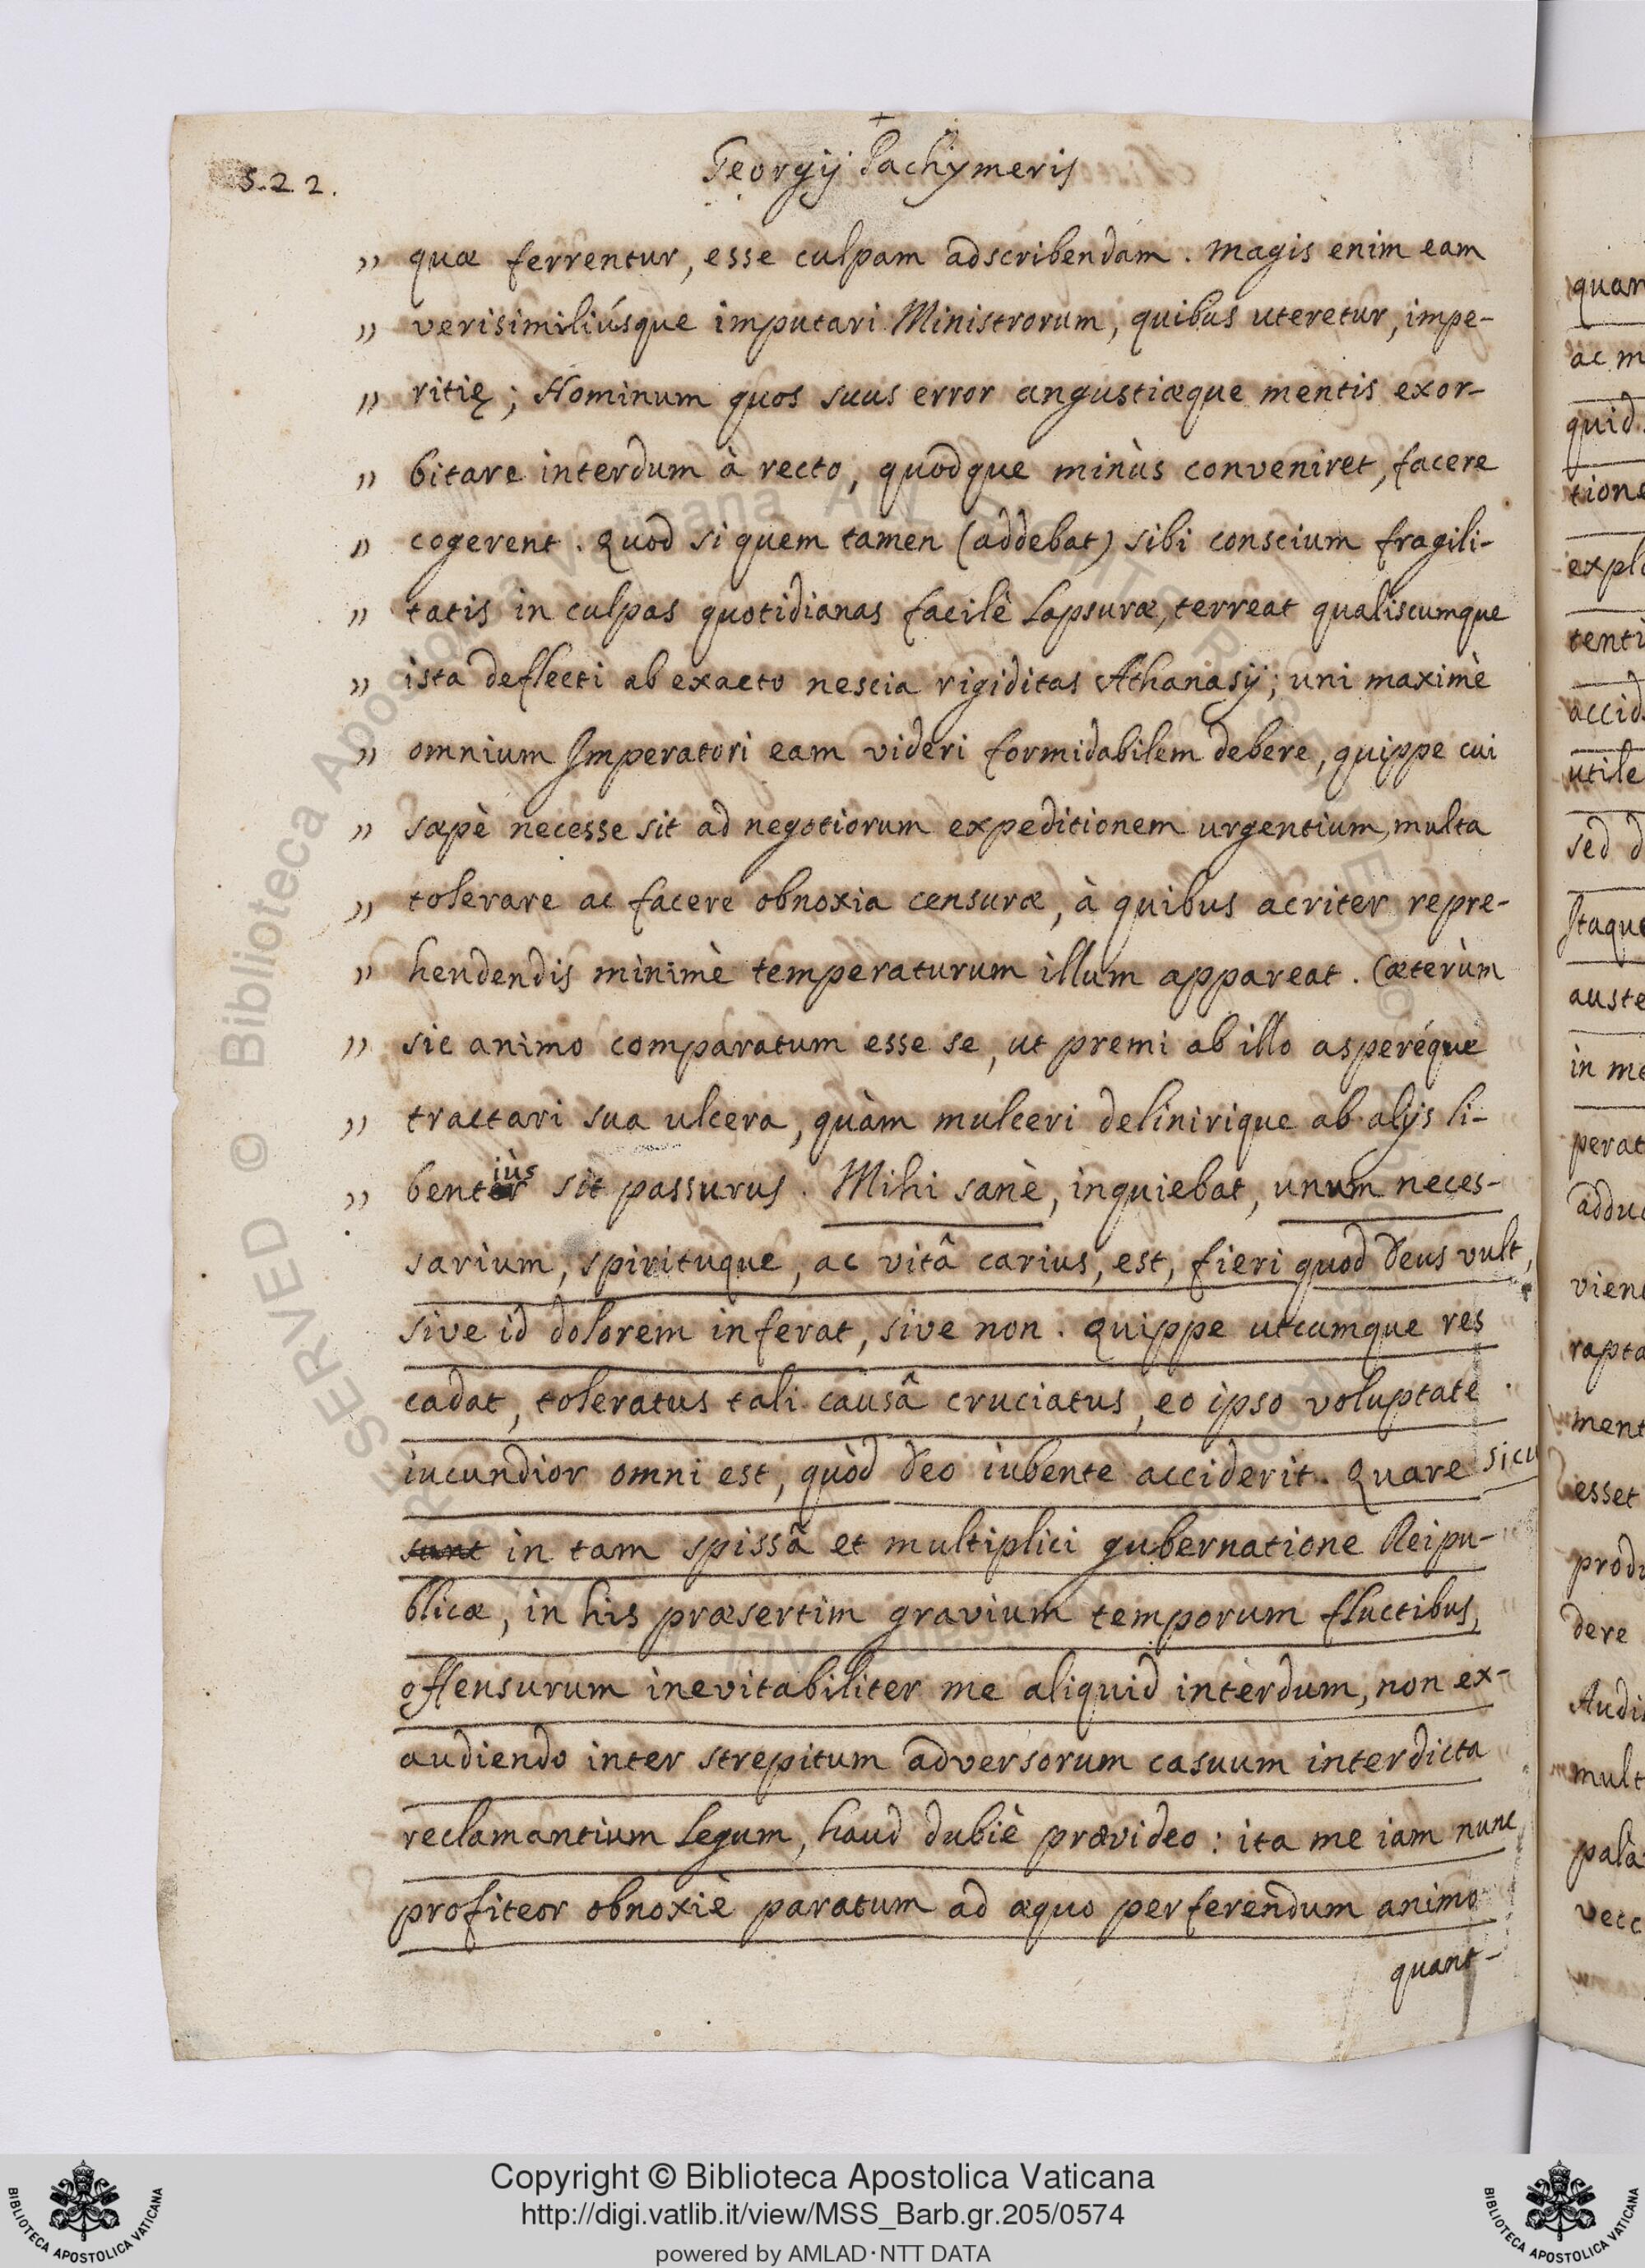 522.
Georgij Pachymeris
„ quæ ferrentur, esse culpam adscribendam. Magis enim eam
„ verisimiliúsque imputari Ministrorum, quibus uteretur, impe-
„ ritię; Hominum quos suus error angustiæque mentis exor-
„ bitare interdum à recto, quodque minùs conveniret, facere
„ cogerent. Quod si quem tamen (addebat) sibi conscium fragili-
„ tatis in culpas quotidianas facilè Lapsuræ, terreat qualiscumque
„ ista deflecti ab exacto nescia rigiditas Athanasij; uni maximè
„ omnium Imperatori eam videri formidabilem debere, quippe cui
„ sæpè necesse sit ad negotiorum expeditionem urgentium, multa
„ tolerare ac facere obnoxia censuræ, à quibus acriter repre-
„ hendendis minimè temperaturum illum appareat. Cæterùm
„ sic animo comparatum esse se, ut premi ab illo asperéque
„ tractari sua ulcera, quàm mulceri delinirique ab alijs li-
„ bentiùs sit passurus. Mihi sanè, inquiebat, unum neces-
sarium, spirituque, ac vitâ carius, est, fieri quod Deus vult,
sive id dolorem inferat, sive non. Quippe utcumque res
cadat, toleratus tali causâ cruciatus, eo ipso voluptate
iucundior omni est, quòd Deo iubente acciderit. Quare sicu
sunt in tam spissâ et multiplici gubernatione Reipu-
blicæ, in his præsertim gravium temporum fluctibus,
offensurum inevitabiliter me aliquid interdum, non ex-
audiendo inter strepitum adversorum casuum interdicta
reclamantium Legum, haud dubiè prævideo: ita me iam nunc
profiteor obnoxiè paratum ad æquo perferendum animo
quant-
quam
ac m
quid
tione
expl
tenti
accid
utile
sed d
Itaque
auste
in me
perat
adduc
vien
rapta
ment
esset
produ
dere
Audi
mult
palà
vecc
© Biblioteca Apostolica Vaticana ALL RIGHTS RESERVED
Copyright © Biblioteca Apostolica Vaticana
http://digi.vatlib.it/view/MSS_Barb.gr.205/0574
powered by AMLAD·NTT DATA
BIBLIOTECA APOSTOLICA VATICANA
BIBLIOTECA APOSTOLICA VATICANA